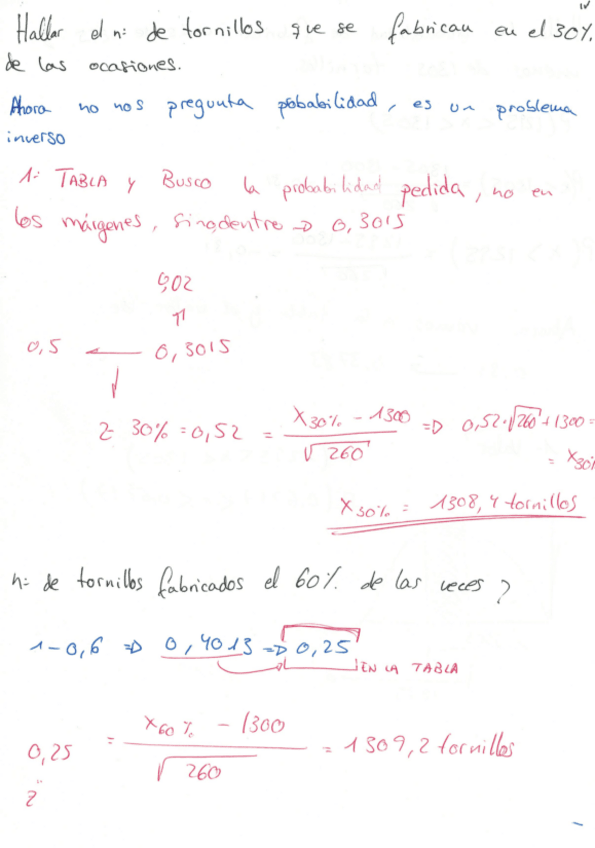 Hallar el nº de tornillos que se fabrican en el 30%
de las ocasiones.
Ahora no nos pregunta pobabilidad, es un problema
inverso
1º TABLA y BUSCO la probabilidad pedida, no en
los márgenes, sino dentro → 0,3015
0,02
⇑
0,5 ← 0,3015
↓
z 30% = 0,52 = (X30% - 1300) / √260 ⇒ 0,52·√260 + 1300 =
= X30%
X30% = 1308,4 tornillos
nº de tornillos fabricados el 60% de las veces?
1-0,6 ⇒ 0,4013 ⇒ 0,25
EN LA TABLA
0,25 = (X60% - 1300) / √260 = 1309,2 tornillos
z